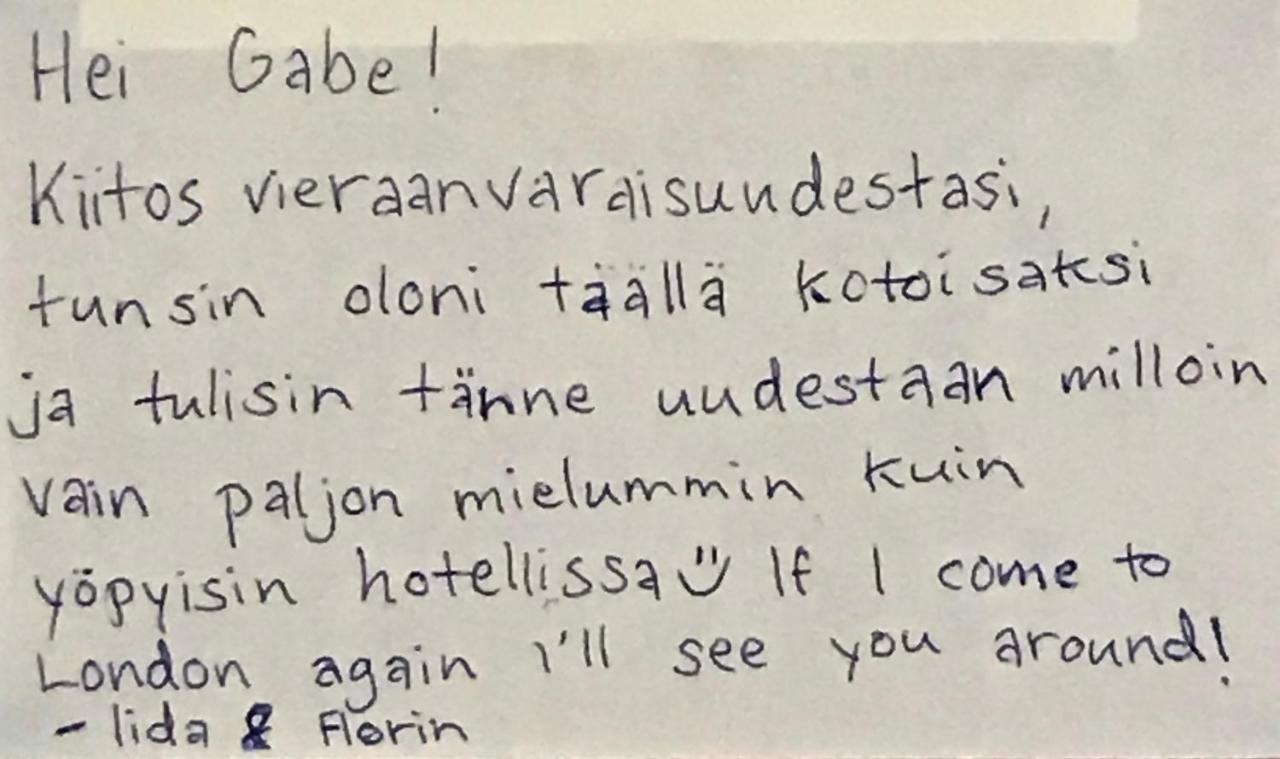 Hei Gabe!
Kiitos vieraanvaraisuudestasi,
tunsin oloni täällä kotoisaksi
ja tulisin tänne uudestaan milloin
vain paljon mielummin kuin
yöpyisin hotellissa ü If I come to
London again i'll see you around!
- Iida & Florin